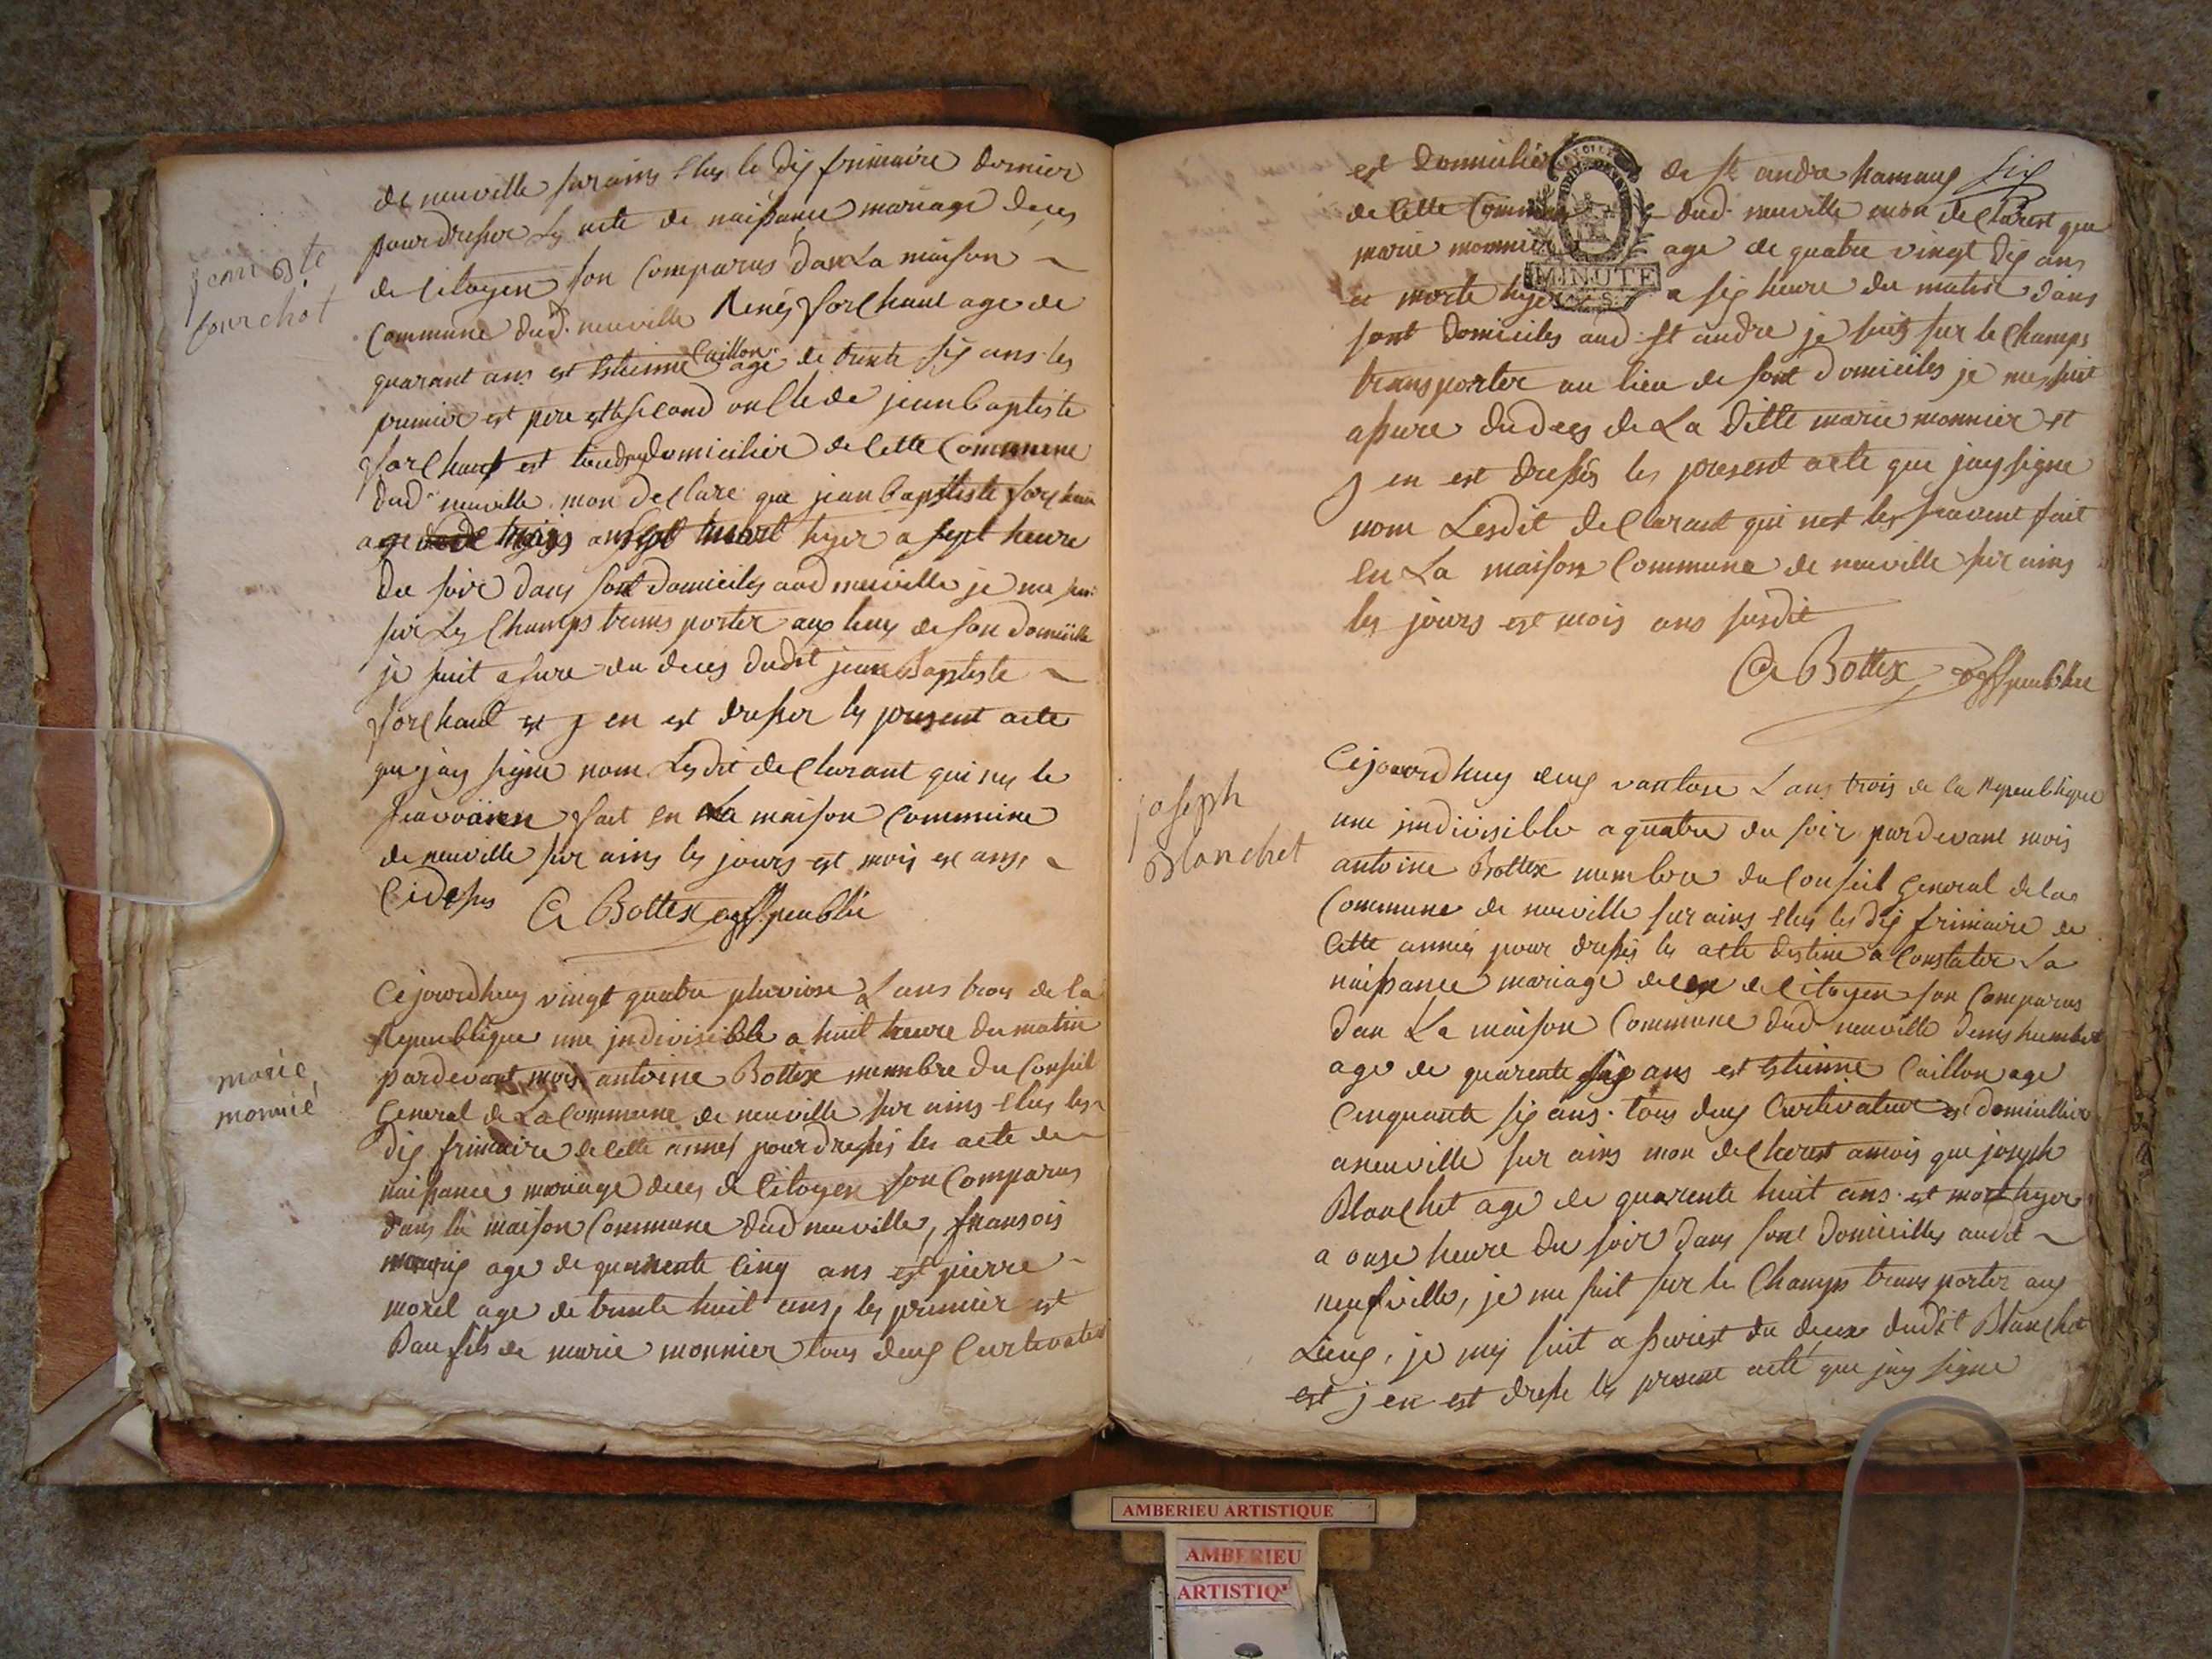 de neuville sur ains Elus le dix frimaire dernier
pour dresser Les acte de naissance mariage deces
de Citoyen son Comparus dans La maison
jean Bste
fourchot
Commune dud. neuville Renes forchaut age de
quarant ans est Estienne Caillon age de trante six ans les
premier est pere est le second oncle de jean Baptiste
forchaut est tous deux domicilier de Cette Commune
dud neuville mon declare que jean Baptiste
age trois ans est mort hyer a sept heure
du soir dans sont domiciles aud neuville je me suit
sur Les Champs trans porter aux lieux de son domicille
je suit assure du deces dudit jean Baptiste
forchaut est j en est dresser les present acte
que jay signe nom Lesdit declarant qui nes le
scavoien fait en La maison Commune
de neuville sur ains les jours est mois est ans
Cidessus
C A Bottex off publié
Cejourdhuy vingt quatre pluviose Lans trois de la
Republique une jndivisible a huit heure du matin
pardevant mois antoine Bottex membre du Conseil
marie
monnié
General de La Commune de neuville sur ains Elus les
dix frimaire de Cette annes pour dresses les acte de
naissance mariage deces de Citoyen son Comparus
dans la maison Commune dud neuville, fransois
age de quarente Cinq ans est pierre
morel age de trante huit ans, les premier est
Baufils de marie monnier tous deux Curtivateur
est domicilier de St andre hamaux six
de Cette Commune dud. neuville mon declarest que
marie monnier age de quatre vingt dix ans
MINUTE
a morte hyer a six heure du matin dans
sont domiciles aud. St andre je suits sur le Champs
transporter au lieu de sont domiciles je me suit
assure dudeces de La ditte marie monnier et
j en est dresses les present acte que jay signe
nom Lesdit declarant qui nest les scavent fait
en La maison Commune de neuville sur ains
les jours est mois ans susdit
C A Bottex off publiee
Cejourdhuy deux vantose Lans trois de la Republique
joseph
Blanchet
une jndivisible a quatre du soir pardevant mois
antoine Bottex membre du Conseil General de la
Commune de neuville sur ains Elus les dix frimaire de
Cette annés pour dresses les acte destine a Constater La
naissance mariage deces de Citoyen son Comparus
dan La maison Commune dud neuville denis humbert
age de quarente six ans est Estienne Caillon age
Cinquante six ans. tous deux Curtivateur est domicillier
a neuville sur ains mon declarest amois que joseph
Blanchet age de quarente huit ans. est mort hyer
a onse heure du soir dans sont domicilles audit
neufville, je me suit sur les Champs trans porter aux
Lieux, je mes suit assurest du deces dudit Blanchet
est j en est dresse les present acte que jay signe
AMBERIEU ARTISTIQUE
AMBERIEU
ARTISTIQ